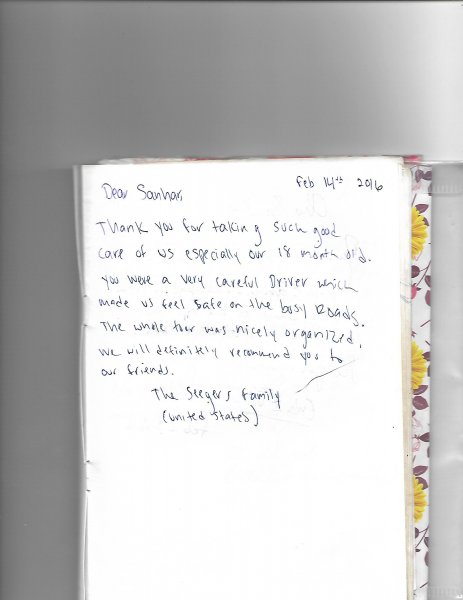 Feb 14th 2016
Dear Sanhar,
Thank you for taking such good
care of us especially our 18 month old.
You were a very careful Driver which
made us feel safe on the busy Roads.
The whole tour was nicely organized,
we will definitely recommend you to
our friends.
The Seegers Family
(United States)